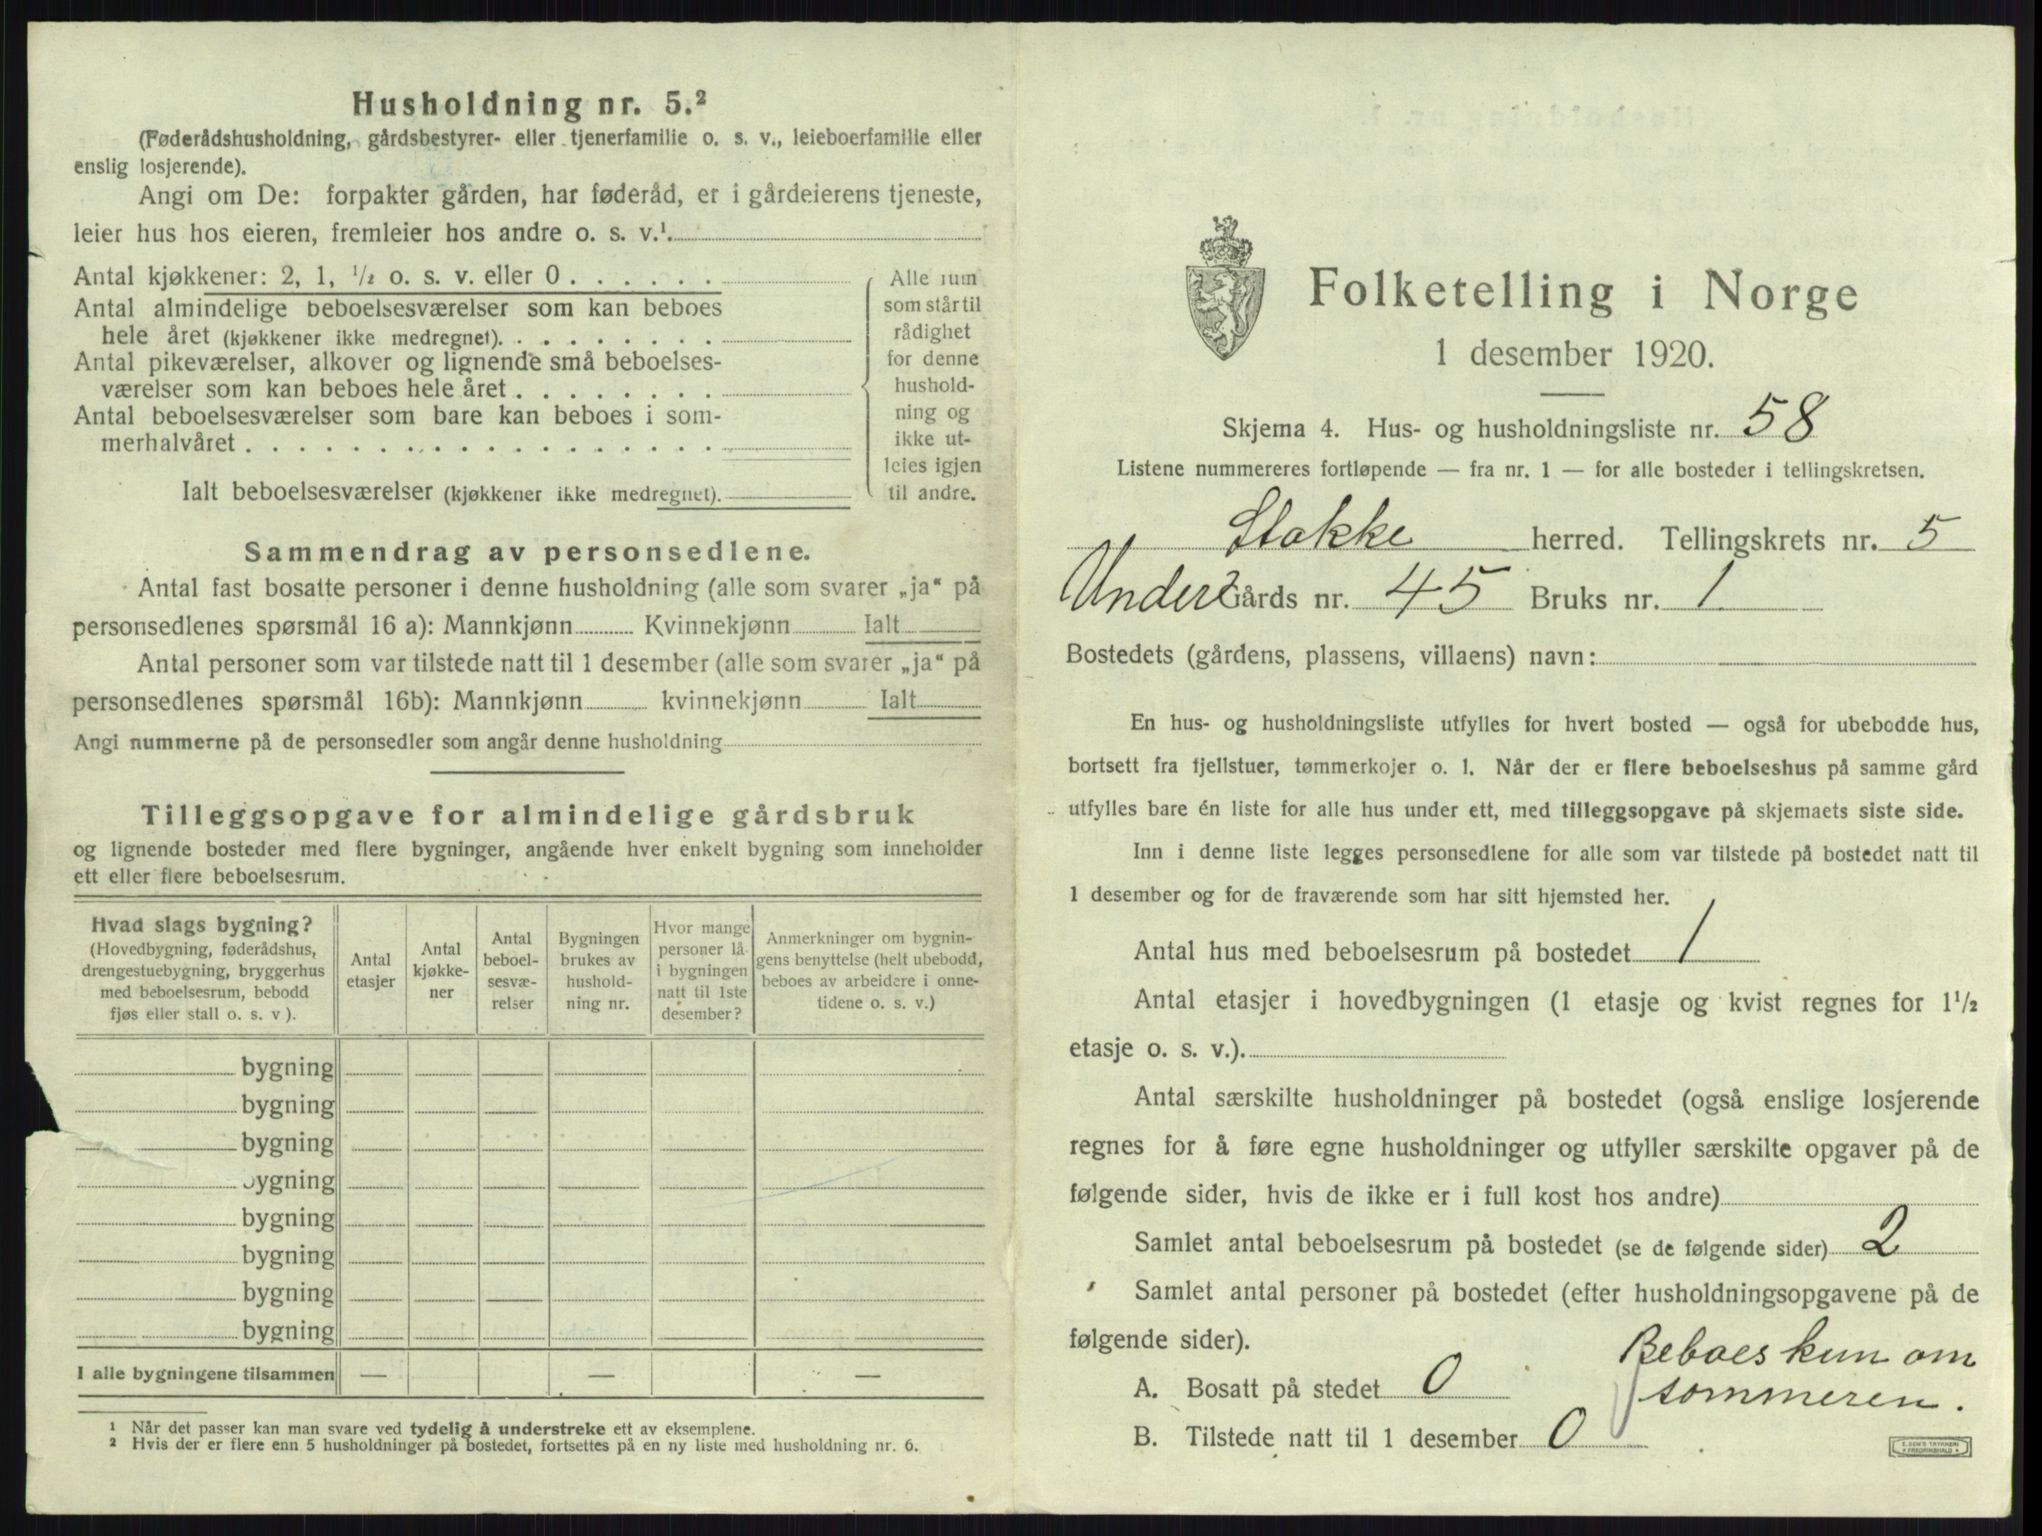 Husholdning nr. 5.²
(Føderådshusholdning, gårdsbestyrer- eller tjenerfamilie o. s. v., leieboerfamilie eller
enslig losjerende).
Angi om De: forpakter gården, har føderåd, er i gårdeierens tjeneste,
leier hus hos eieren, fremleier hos andre o. s. v.¹.
Antal kjøkkener: 2, 1, ½ o. s. v. eller 0 . . . . . .
Antal almindelige beboelsesværelser som kan beboes
hele året (kjøkkener ikke medregnet). . . . . . . . .
Antal pikeværelser, alkover og lignende små beboelses-
værelser som kan beboes hele året . . . . . . . .
Antal beboelsesværelser som bare kan beboes i som-
merhalvåret . . . . . . . . . . . . . . . . . .
Ialt beboelsesværelser (kjøkkener ikke medregnet).
Alle rum
som står til
rådighet
for denne
hushold-
ning og
ikke ut-
leies igjen
til andre.
Sammendrag av personsedlene.
Antal fast bosatte personer i denne husholdning (alle som svarer „ja“ på
personsedlenes spørsmål 16 a): Mannkjønn Kvinnekjønn Ialt
Antal personer som var tilstede natt til 1 desember (alle som svarer „ja“ på
personsedlenes spørsmål 16b): Mannkjønn kvinnekjønn Ialt
Angi nummerne på de personsedler som angår denne husholdning
Tilleggsopgave for almindelige gårdsbruk
og lignende bosteder med flere bygninger, angående hver enkelt bygning som inneholder
ett eller flere beboelsesrum.
Hvad slags bygning?
(Hovedbygning, føderådshus,
drengestuebygning, bryggerhus
med beboelsesrum, bebodd
fjøs eller stall o. s. v ).
Antal
etasjer
Antal
kjøkke-
ner
Antal
beboel-
sesvæ-
relser
Bygningen
brukes av
hushold-
ning nr.
Hvor mange
personer lå
i bygningen
natt til 1ste
desember?
Anmerkninger om bygnin-
gens benyttelse (helt ubebodd,
beboes av arbeidere i onne-
tidene o. s. v.)
bygning
bygning
bygning
bygning
bygning
bygning
bygning
bygning
I alle bygningene tilsammen — — —
¹ Når det passer kan man svare ved tydelig å understreke ett av eksemplene.
² Hvis der er flere enn 5 husholdninger på bostedet, fortsettes på en ny liste med husholdning nr. 6.
Folketelling i Norge
1 desember 1920.
Skjema 4. Hus- og husholdningsliste nr. 58
Listene nummereres fortløpende — fra nr. 1 — for alle bosteder i tellingskretsen.
Stokke herred. Tellingskrets nr. 5
Under Gårds nr. 45 Bruks nr. 1
Bostedets (gårdens, plassens, villaens) navn:
En hus- og husholdningsliste utfylles for hvert bosted — også for ubebodde hus,
bortsett fra fjellstuer, tømmerkojer o. l. Når der er flere beboelseshus på samme gård
utfylles bare én liste for alle hus under ett, med tilleggsopgave på skjemaets siste side.
Inn i denne liste legges personsedlene for alle som var tilstede på bostedet natt til
1 desember og for de fraværende som har sitt hjemsted her.
Antal hus med beboelsesrum på bostedet 1
Antal etasjer i hovedbygningen (1 etasje og kvist regnes for 1½
etasje o. s. v.).
Antal særskilte husholdninger på bostedet (også enslige losjerende
regnes for å føre egne husholdninger og utfyller særskilte opgaver på de
følgende sider, hvis de ikke er i full kost hos andre)
Samlet antal beboelsesrum på bostedet (se de følgende sider) 2
Samlet antal personer på bostedet (efter husholdningsopgavene på de
følgende sider).
Beboes kun om
sommeren.
A. Bosatt på stedet 0
B. Tilstede natt til 1 desember 0